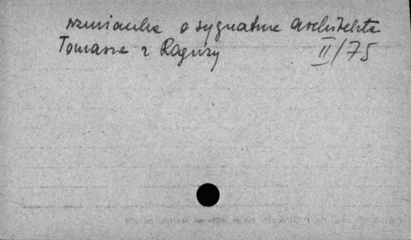 wzmianka o sygnaturze architekta
Tomasza z Raguzy II/75